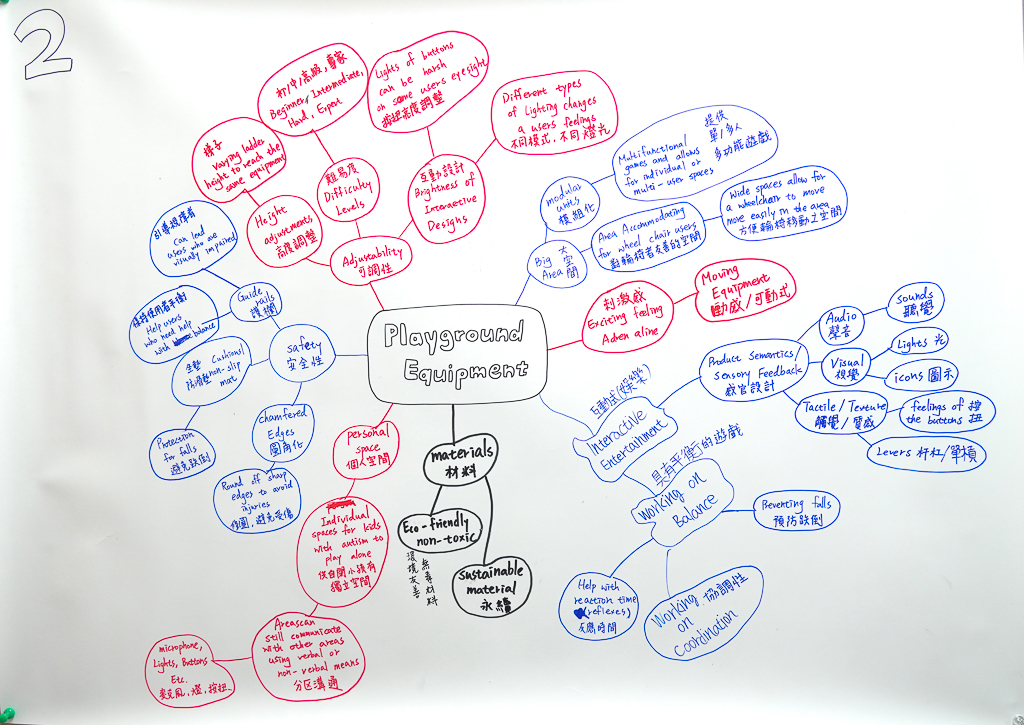 2
Playground
Equipment
Adjustability
可調性
Height
adjustments
高度調整
梯子
Varying ladder
height to reach the
same equipment
難易度
Difficulty
Levels
初/中/高級,專家
Beginner, Intermediate,
Hard, Expert
互動設計
Brightness of
Interactive
Designs
Lights of buttons
can be harsh
on some users eyesight
按扭亮度調整
Different types
of Lighting changes
a users feelings
不同模式,不同燈光
Big
Area
大
空
間
modular
units
模組化
Multifunctional
games and allows
for individual or
multi-user spaces
提供
單/多人
多功能遊戲
Area Accomodating
for wheel chair users
對輪椅者友善的空間
Wide spaces allow for
a wheelchair to move
more easily in the area
方便輪椅移動之空間
刺激感
Exciting feeling
Adren aline
Moving
Equipment
動感/可動式
互動式(娛樂)
Interactive
Entertainment
Product Semantics/
Sensory Feedback
感官設計
Audio
聲音
sounds
聽覺
Visual
視覺
Lights 光
icons 圖示
Tactile/Texture
觸覺/質感
feelings of
the buttons
按
扭
Levers 杆杠/單槓
具有平衡行的遊戲
Working on
Balance
Preventing falls
預防跌倒
Help with
reaction time
(reflexes)
反應時間
Working
on
Coordination
協調性
materials
材料
Eco-friendly
non-toxic
環境友善
無毒材料
sustainable
material
永續
personal
space
個人空間
Individual
spaces for kids
with autism to
play alone
供自閉小孩有
獨立空間
Areascan
still communicate
with other areas
using verbal or
non-verbal means
分区溝通
microphone,
Lights, Buttons
Etc.
麦克風,燈,按扭...
safety
安全性
Guide
rails
護欄
引導視障者
Can lead
users who are
visually impaired
使用者平衡
Help users
who need help
with balance
Cushions/
non-slip
mat
防滑墊
Protection
for falls
避免跌倒
chamfered
Edges
圓角化
Round off sharp
edges to avoid
injuries
圓,避免受傷